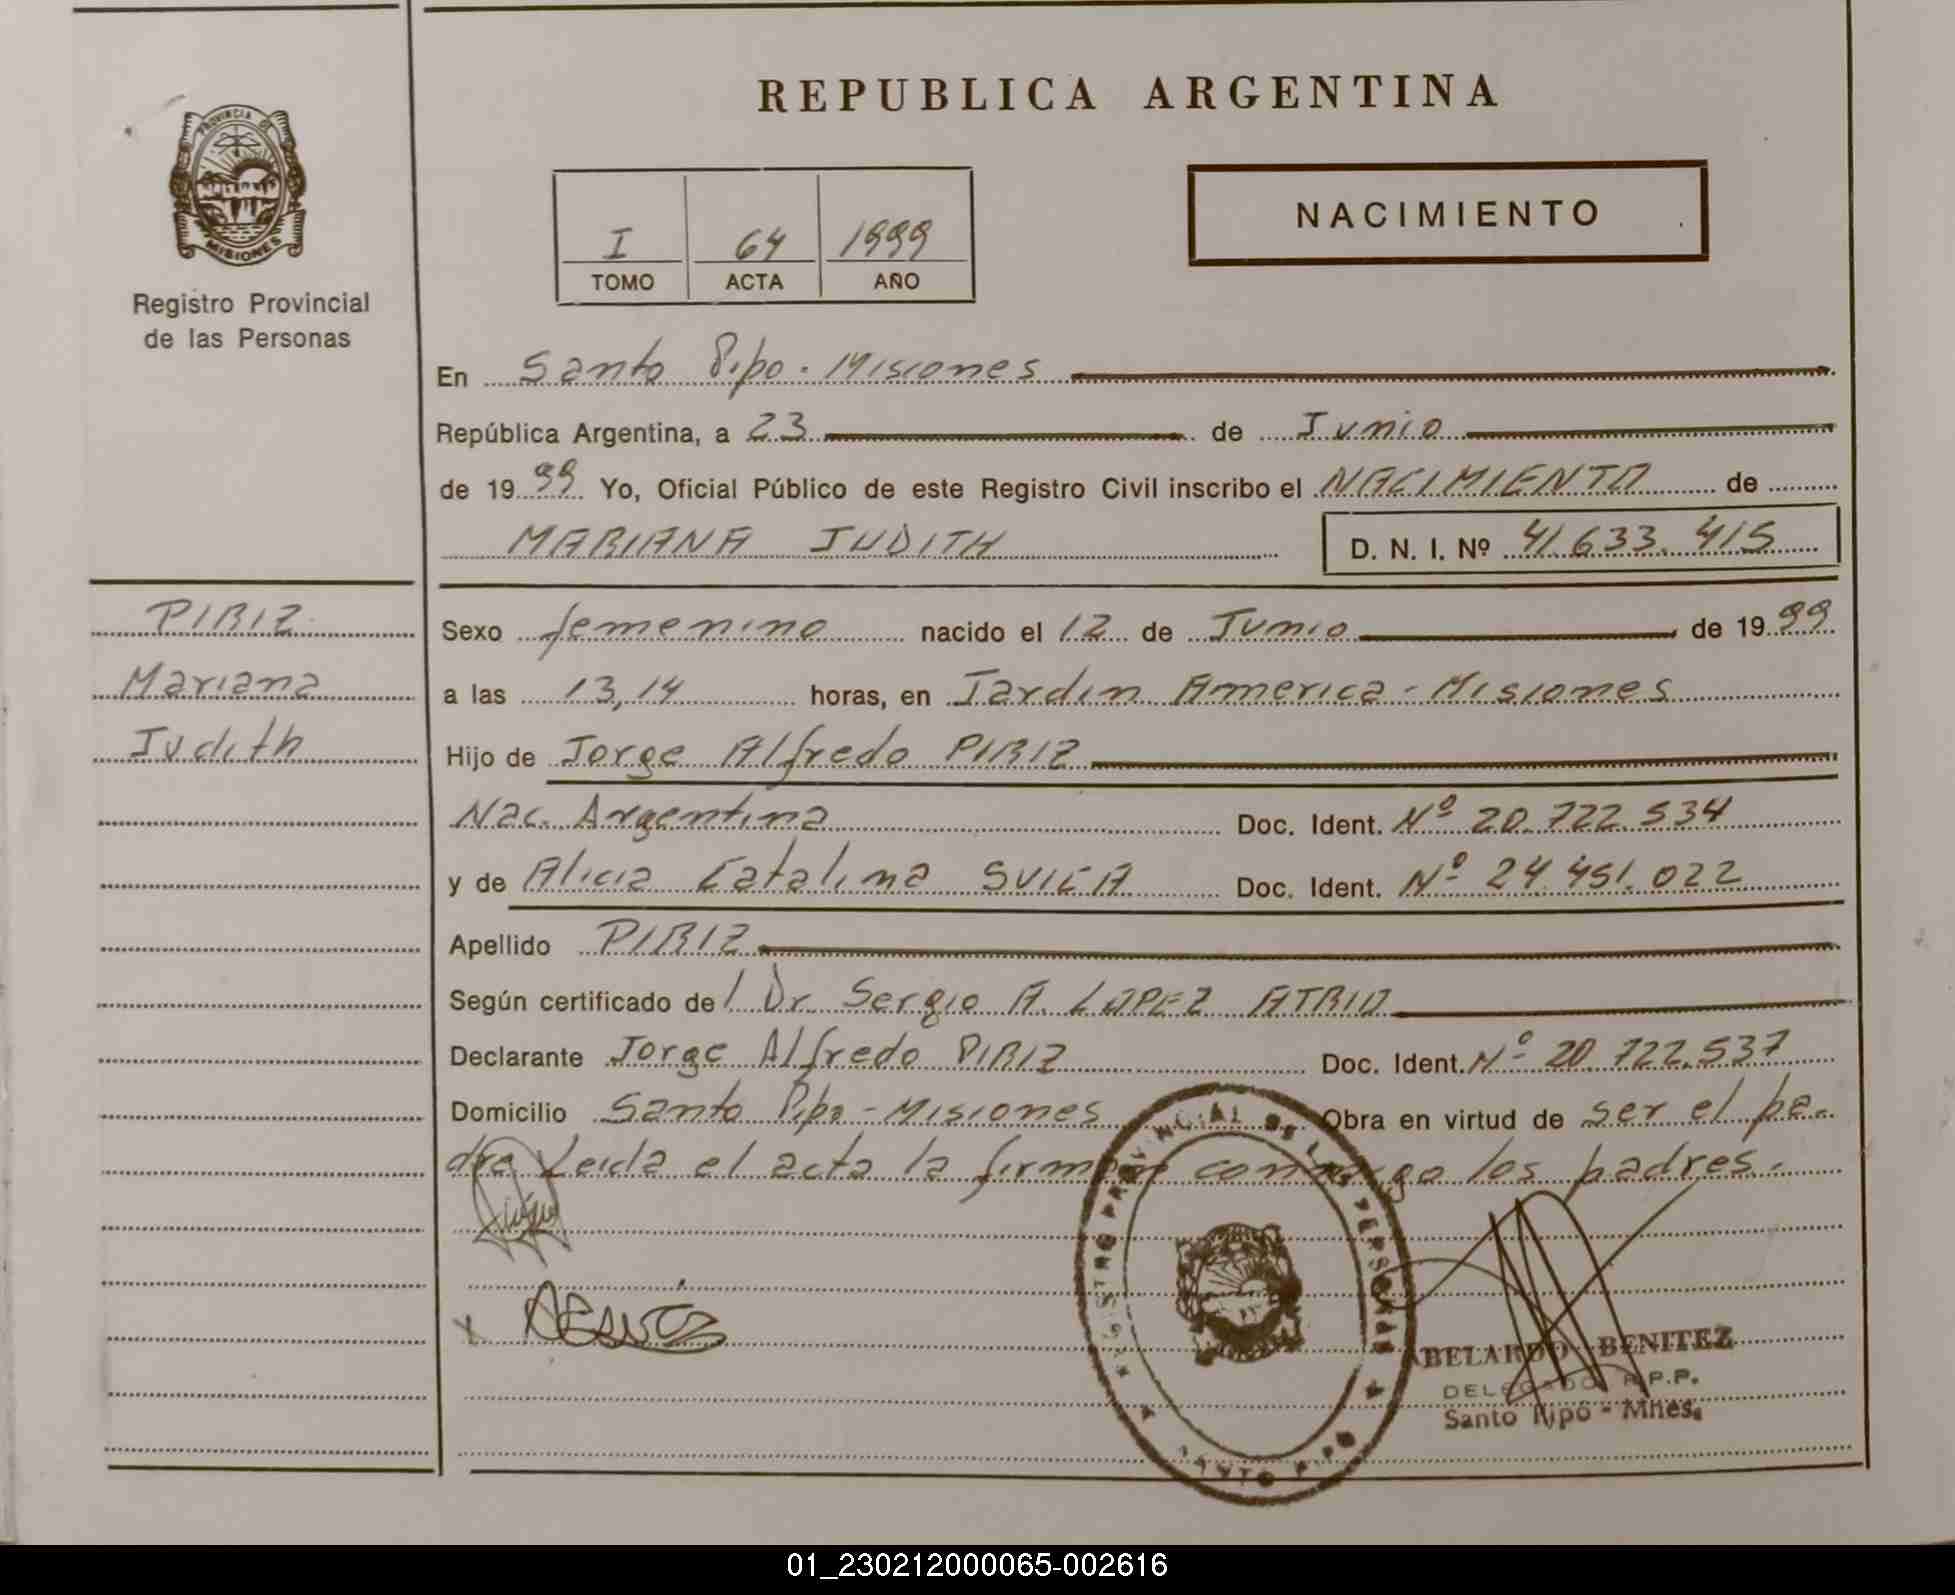 REPUBLICA ARGENTINA
PROVINCIA DE
MISIONES
Registro Provincial
de las Personas
NACIMIENTO
I 64 1999
TOMO ACTA AÑO
En Santo Pipo - Misiones
República Argentina, a 23 de Junio
de 1999 Yo, Oficial Público de este Registro Civil inscribo el NACIMIENTO de
MARIANA JUDITH D. N. I. Nº 41.633.415
PIRIZ
Mariana
Judith
Sexo femenino nacido el 12 de Junio de 1999
a las 13,14 horas, en Jardin America - Misiones
Hijo de Jorge Alfredo PIRIZ
Nac. Argentina Doc. Ident. Nº 20.722.534
y de Alicia Catalina SVICA Doc. Ident. Nº 24.451.022
Apellido PIRIZ
Según certificado del Dr. Sergio A. LOPEZ ATRIO
Declarante Jorge Alfredo PIRIZ Doc. Ident. Nº 20.722.537
Domicilio Santo Pipo - Misiones Obra en virtud de ser el pa-
dre Leida el acta la firman conmigo los padres.
REGISTRO PROVINCIAL DE LAS PERSONAS
SANTO PIPO
ABELARDO BENITEZ
DELEGADO R.P.P.
Santo Pipó - Mnes.
01_230212000065-002616